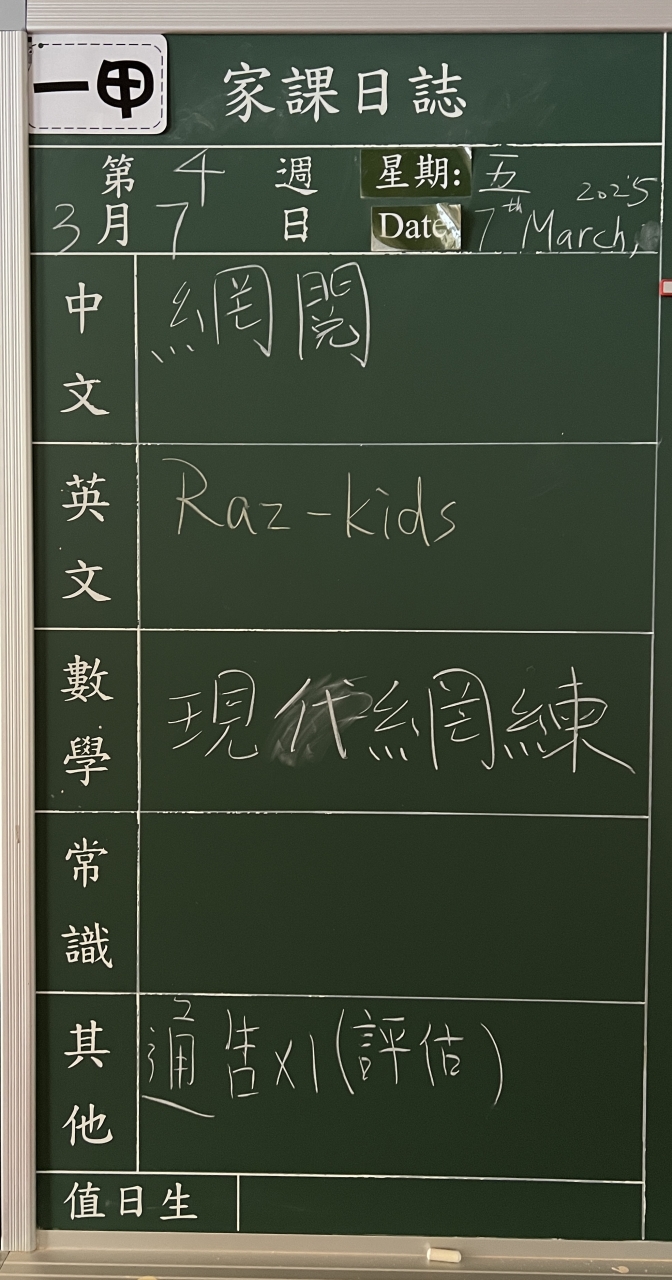 一甲 家課日誌
第 4 週 星期: 五
3月7日 Date 7th March, 2025
中文 網閱
英文 Raz-kids
數學 現代網練
常識
其他 通告x1(評估)
值日生